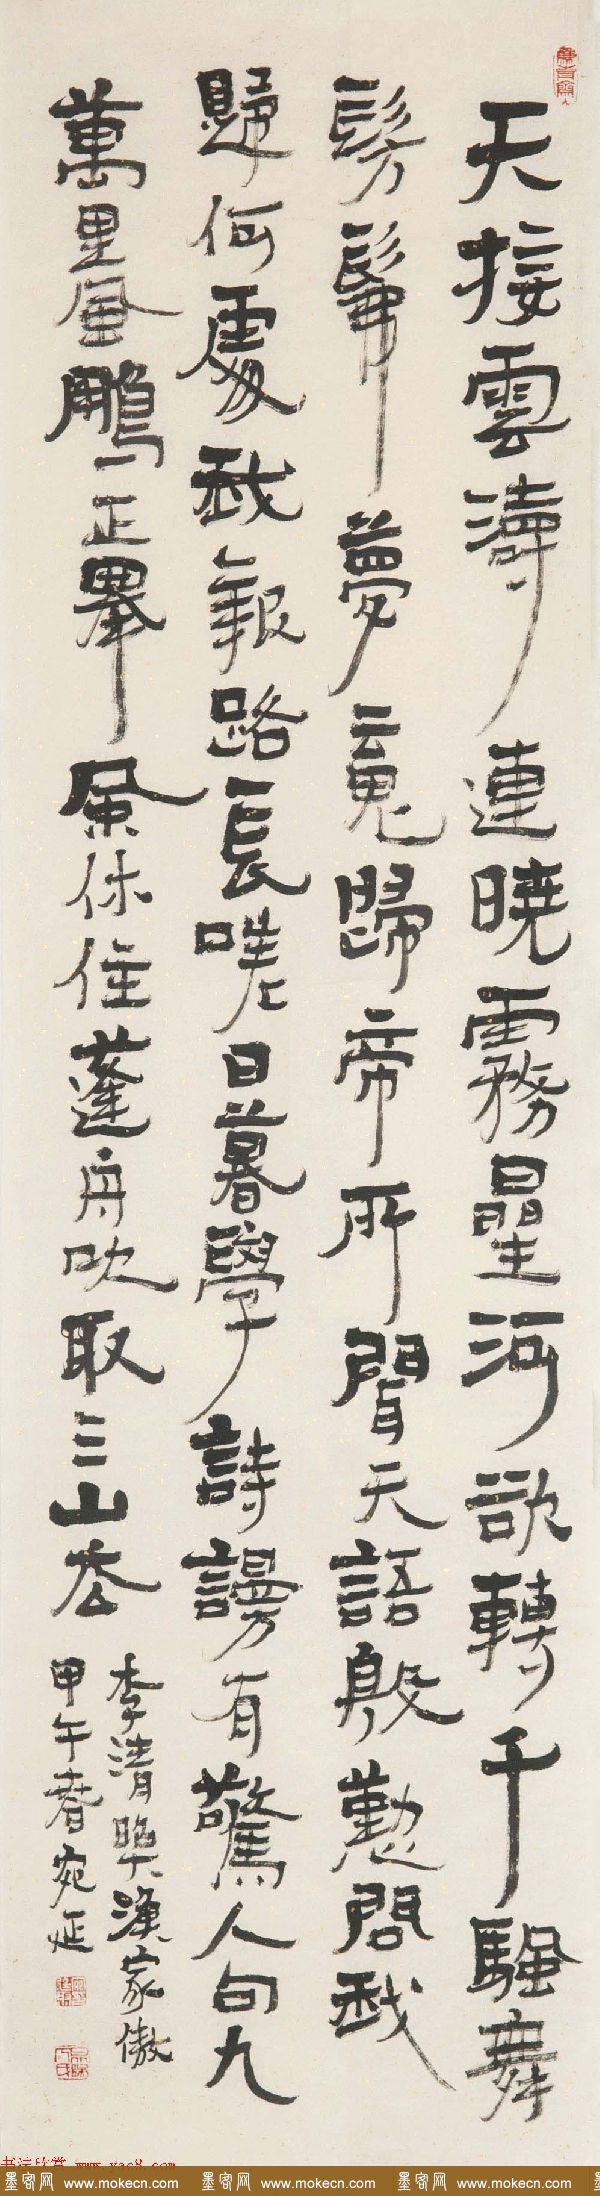 天接雲濤連曉霧曐河欲轉千颿舞
髣髴夢魂歸帝所聞天語殷懃問我
歸何處我報路長嗟日暮學詩謾有驚人句九
萬里風鵬正舉風休住蓬舟吹取三山去
李清照漁家傲
甲午春宛延
书法欣赏 www.yac8.com
墨客网 www.mokecn.com 墨客网 www.mokecn.com 墨客网 www.mokecn.com